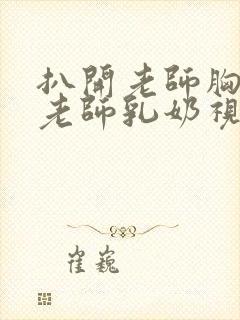 扒開老師胸
老師乳奶視
崔巍